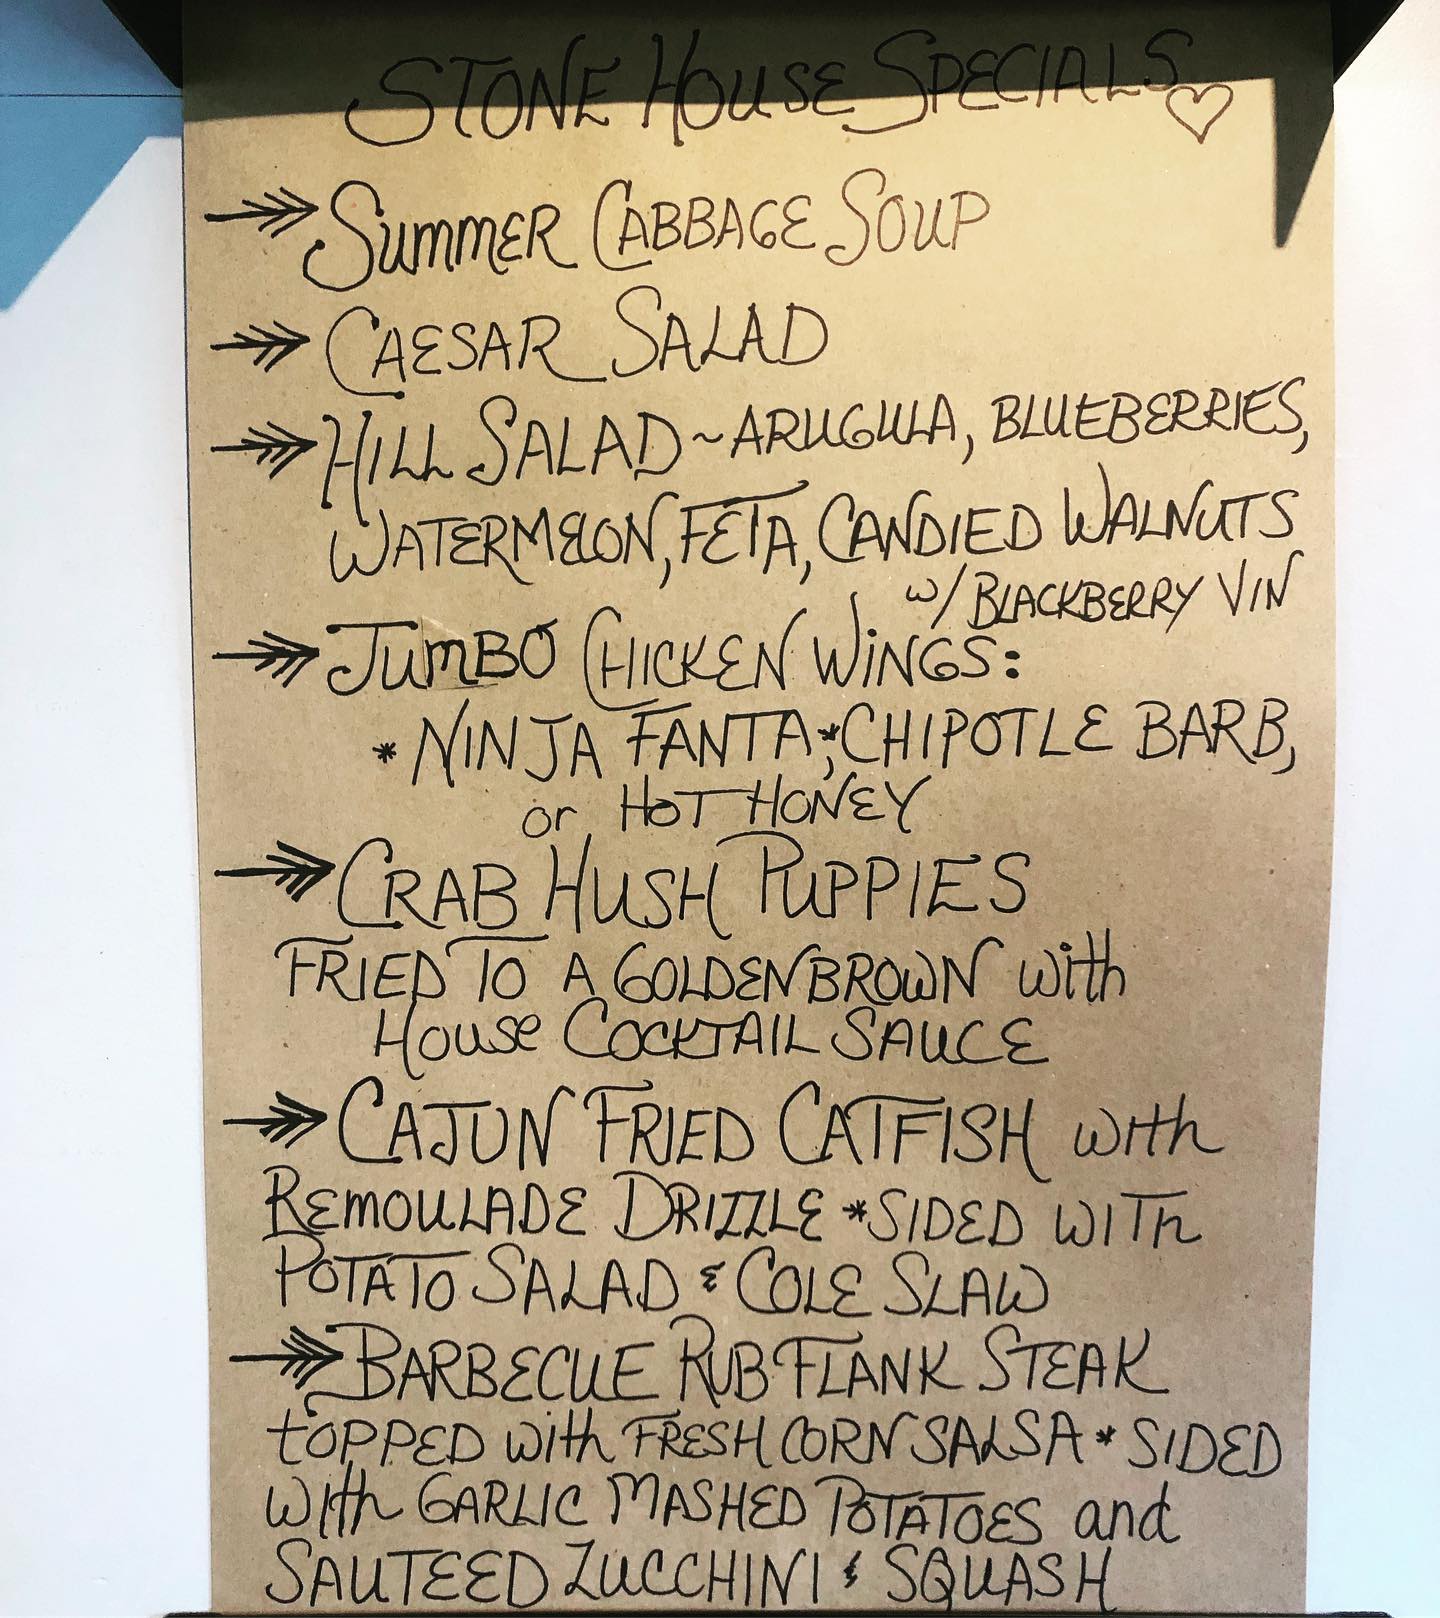 STONE HOUSE SPECIALS ♡
SUMMER CABBAGE SOUP
CAESAR SALAD
HILL SALAD ~ ARUGULA, BLUEBERRIES,
WATERMELON, FETA, CANDIED WALNUTS
w/ BLACKBERRY VIN
JUMBO CHICKEN WINGS:
* NINJA FANTA, * CHIPOTLE BARB,
or HOT HONEY
CRAB HUSH PUPPIES
FRIED TO A GOLDEN BROWN with
HOUSE COCKTAIL SAUCE
CAJUN FRIED CATFISH with
REMOULADE DRIZZLE * SIDED WITH
POTATO SALAD & COLE SLAW
BARBECUE RUB FLANK STEAK
TOPPED with FRESH CORN SALSA * SIDED
with GARLIC MASHED POTATOES and
SAUTEED ZUCCHINI & SQUASH